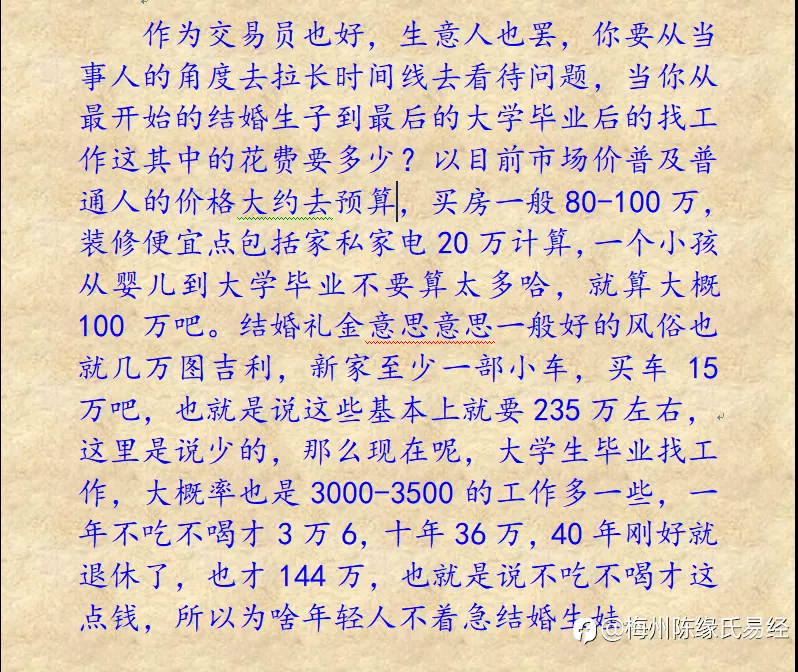 作为交易员也好，生意人也罢，你要从当
事人的角度去拉长时间线去看待问题，当你从
最开始的结婚生子到最后的大学毕业后的找工
作这其中的花费要多少？以目前市场价普及普
通人的价格大约去预算，买房一般 80-100 万，
装修便宜点包括家私家电 20 万计算，一个小孩
从婴儿到大学毕业不要算太多哈，就算大概
100 万吧。结婚礼金意思意思一般好的风俗也
就几万图吉利，新家至少一部小车，买车 15
万吧，也就是说这些基本上就要 235 万左右，
这里是说少的，那么现在呢，大学生毕业找工
作，大概率也是 3000-3500 的工作多一些，一
年不吃不喝才 3 万 6，十年 36 万，40 年刚好就
退休了，也才 144 万，也就是说不吃不喝才这
点钱，所以为啥年轻人不着急结婚生娃
@梅州陈缘氏易经